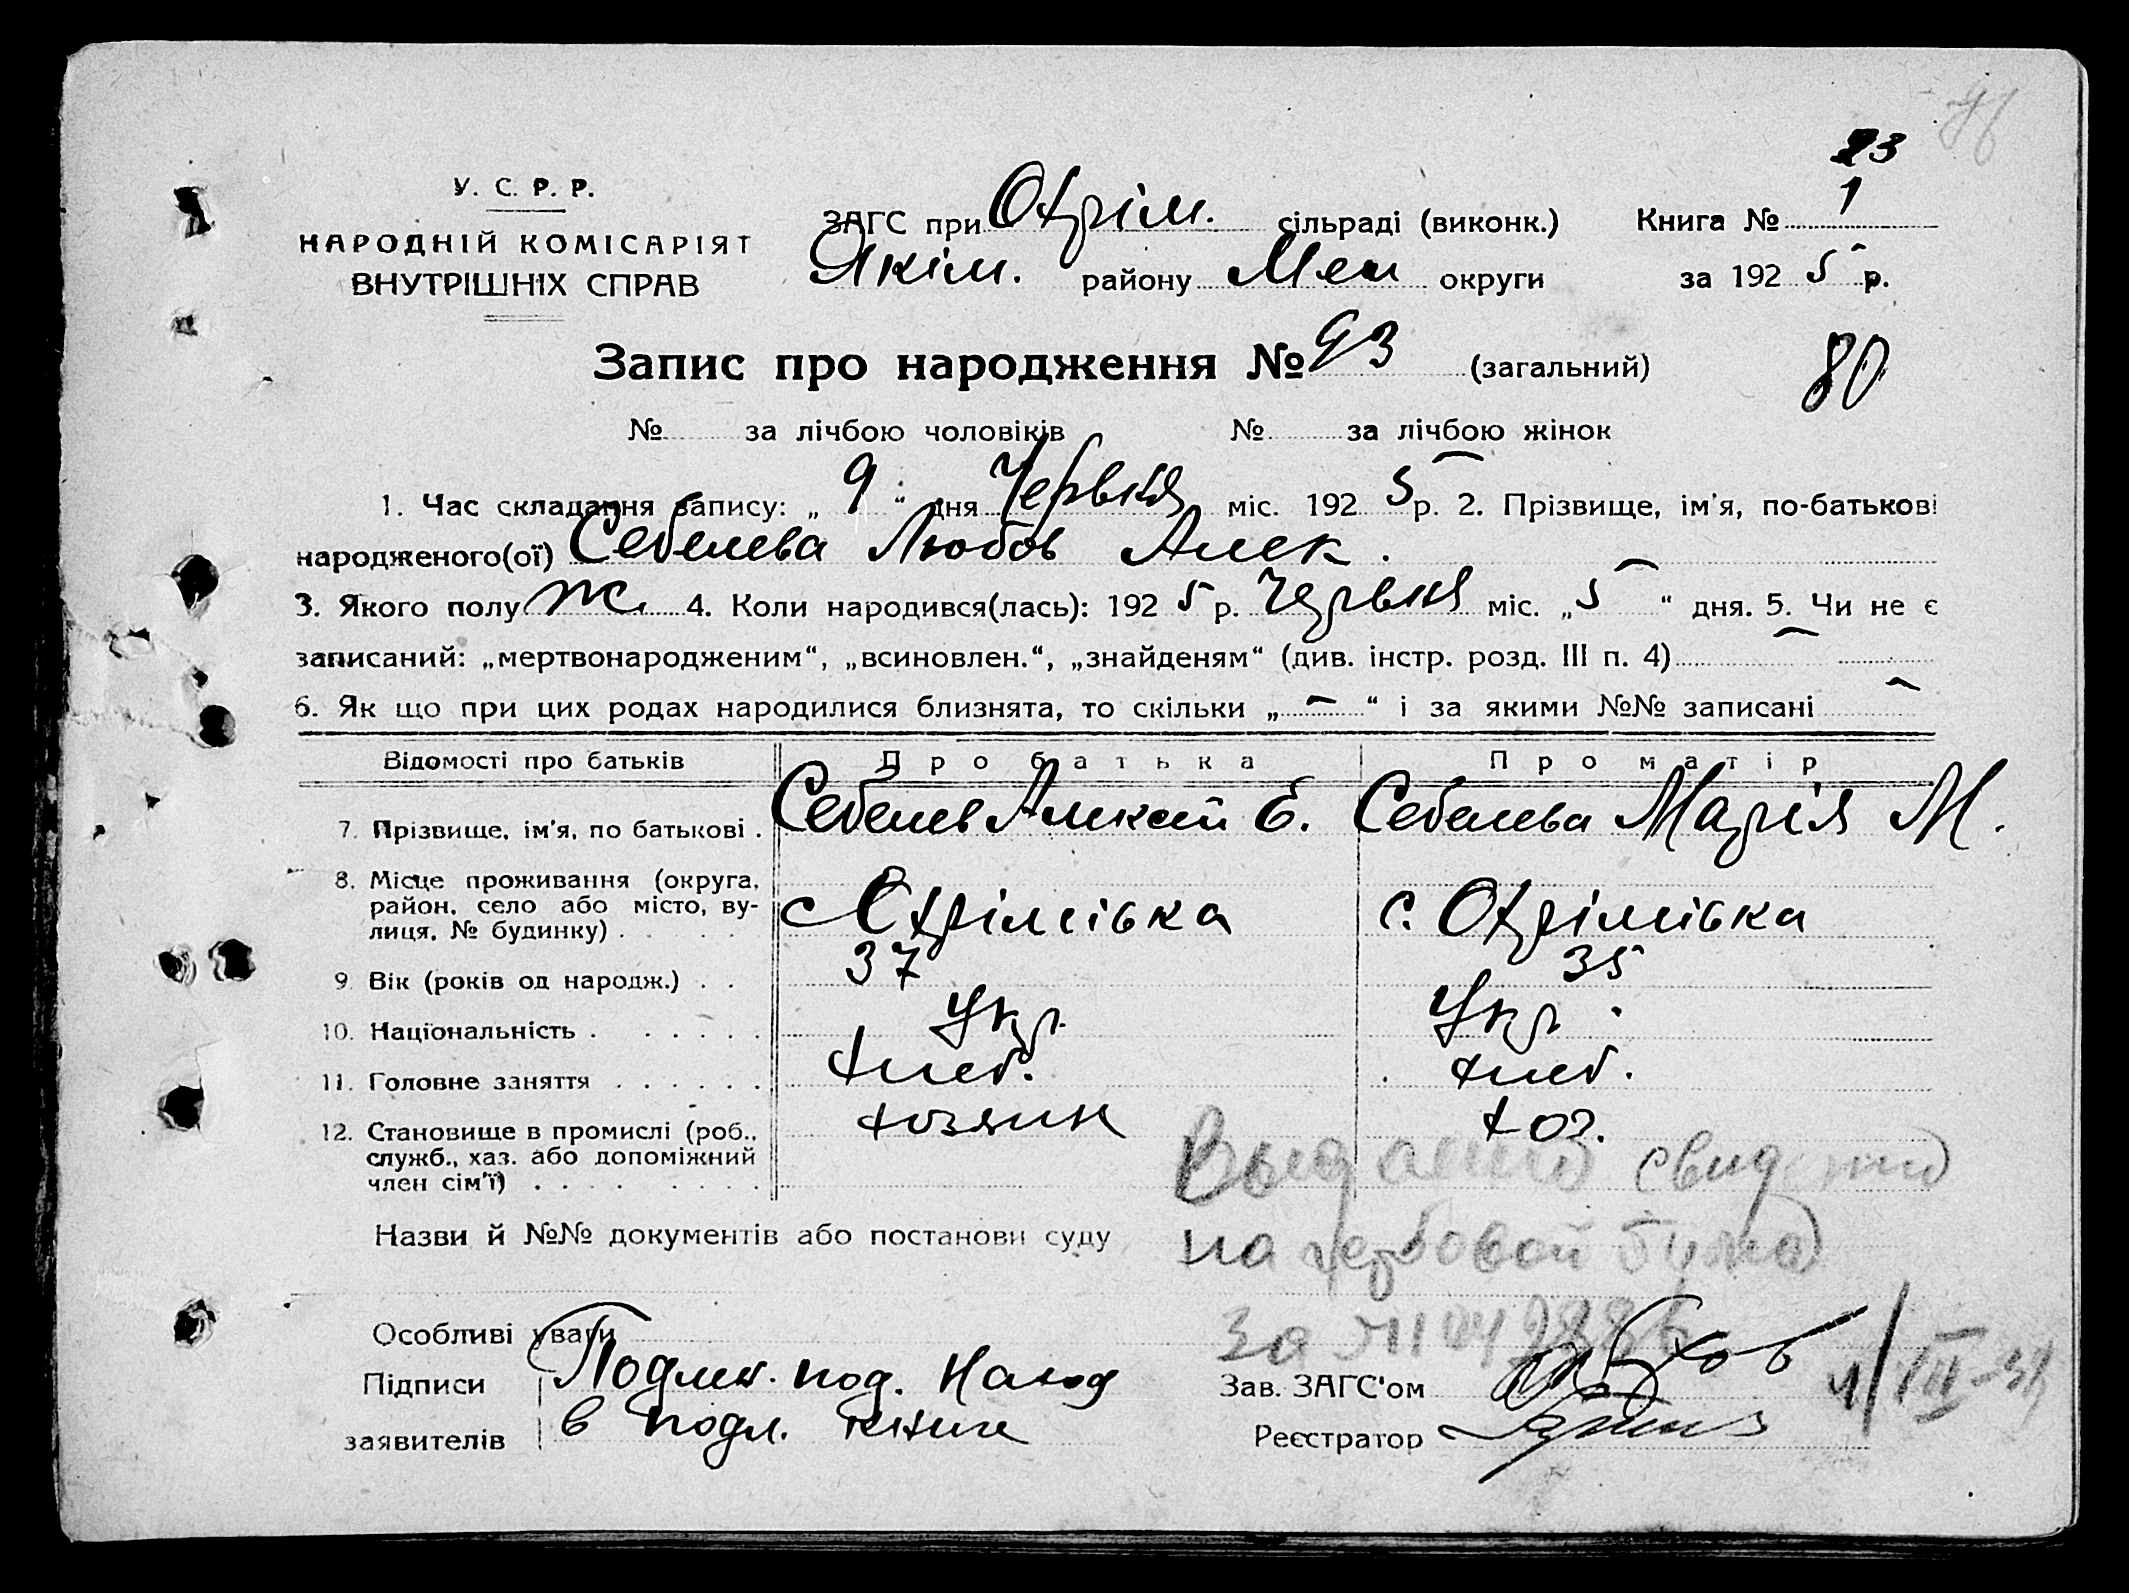 23
У. С. Р. Р.
НАРОДНІЙ КОМІСАРІЯТ
ВНУТРІШНІХ СПРАВ
ЗАГС при Охрім. сільраді (виконк.) Книга № 1
Якім. району Мел округи за 192 5 р.
Запис про народження № 93 (загальний)
80
№ за лічбою чоловіків № за лічбою жінок
1. Час складання запису: „ 9 “ дня Червня міс. 192 5 р. 2. Прізвище, ім'я, по-батькові
народженого(ої) Себелева Любов Алек.
3. Якого полу ж. 4. Коли народився(лась): 192 5 р. червня міс. „ 5 “ дня. 5. Чи не є
записаний: „мертвонародженим“, „всиновлен.“, „знайденям“ (див. інстр. розд. III п. 4) —
6. Як що при цих родах народилися близнята, то скільки „ — “ і за якими №№ записані —
Відомості про батьків Про батька Про матір
7. Прізвище, ім'я, по батькові . Себелев Алексей Е. Себелева Марія М.
8. Місце проживання (округа,
район, село або місто, ву-
лиця, № будинку) . с Охрімівка с. Охрімівка
9. Вік (років од народж.) . . 37 35
10. Національність . Укр. Укр.
11. Головне заняття . хлеб. хлеб.
12. Становище в промислі (роб., хозяин хоз.
служб., хаз. або допоміжний
член сім'ї) .
Выдано свидет
Назви й №№ документів або постанови суду на гербовой бумаг
за
Особливі уваги
Підписи Подлен. под. наход
заявителів в подл. книге
Зав. ЗАГС'ом
Реєстратор